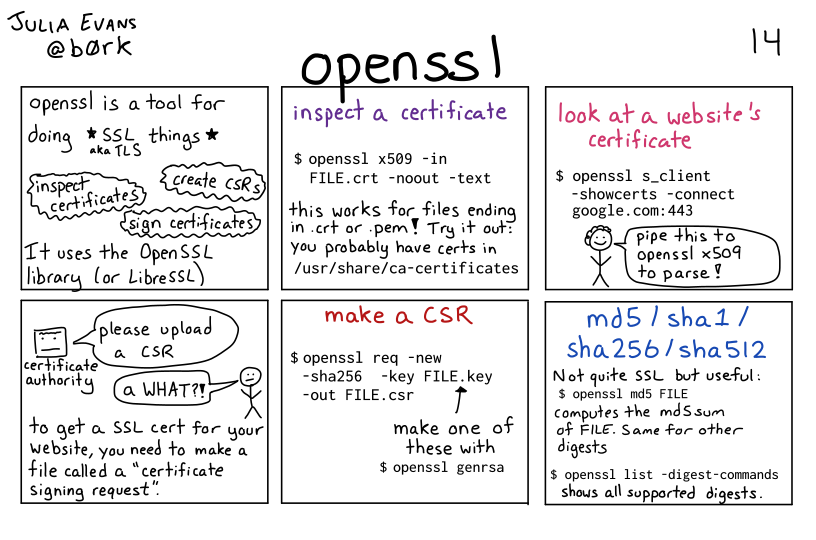 JULIA EVANS
@børk
openssl
14
openssl is a tool for
doing ★ SSL things ★
aka TLS
inspect
certificates
create CSRs
sign certificates
It uses the OpenSSL
library (or LibreSSL)
inspect a certificate
$ openssl x509 -in
FILE.crt -noout -text
this works for files ending
in .crt or .pem! Try it out:
you probably have certs in
/usr/share/ca-certificates
look at a website's
certificate
$ openssl s_client
-showcerts -connect
google.com:443
pipe this to
openssl x509
to parse!
please upload
a CSR
certificate
authority
a WHAT?!
to get a SSL cert for your
website, you need to make a
file called a "certificate
signing request".
make a CSR
$ openssl req -new
-sha256 -key FILE.key
-out FILE.csr
make one of
these with
$ openssl genrsa
md5/sha1/
sha256/sha512
Not quite SSL but useful:
$ openssl md5 FILE
computes the md5sum
of FILE. Same for other
digests
$ openssl list -digest-commands
shows all supported digests.